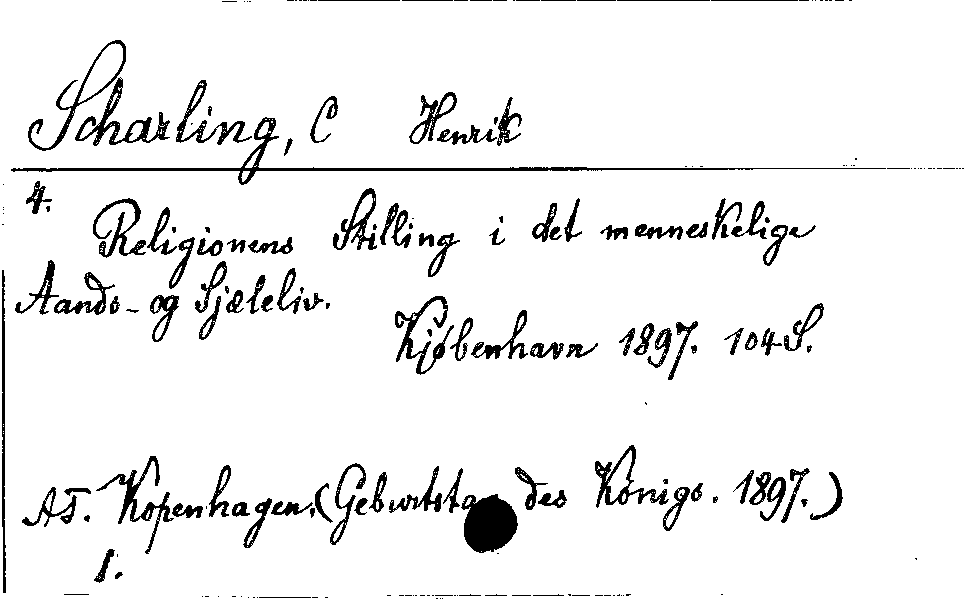 Scharling, C Henrik
4.
Religionens Stilling i det menneskelige
Aands- og Sjæleliv.
Kjøbenhavn 1897. 104 S.
AT. Kopenhagen. (Geburtstag des Königs. 1897.)
1.